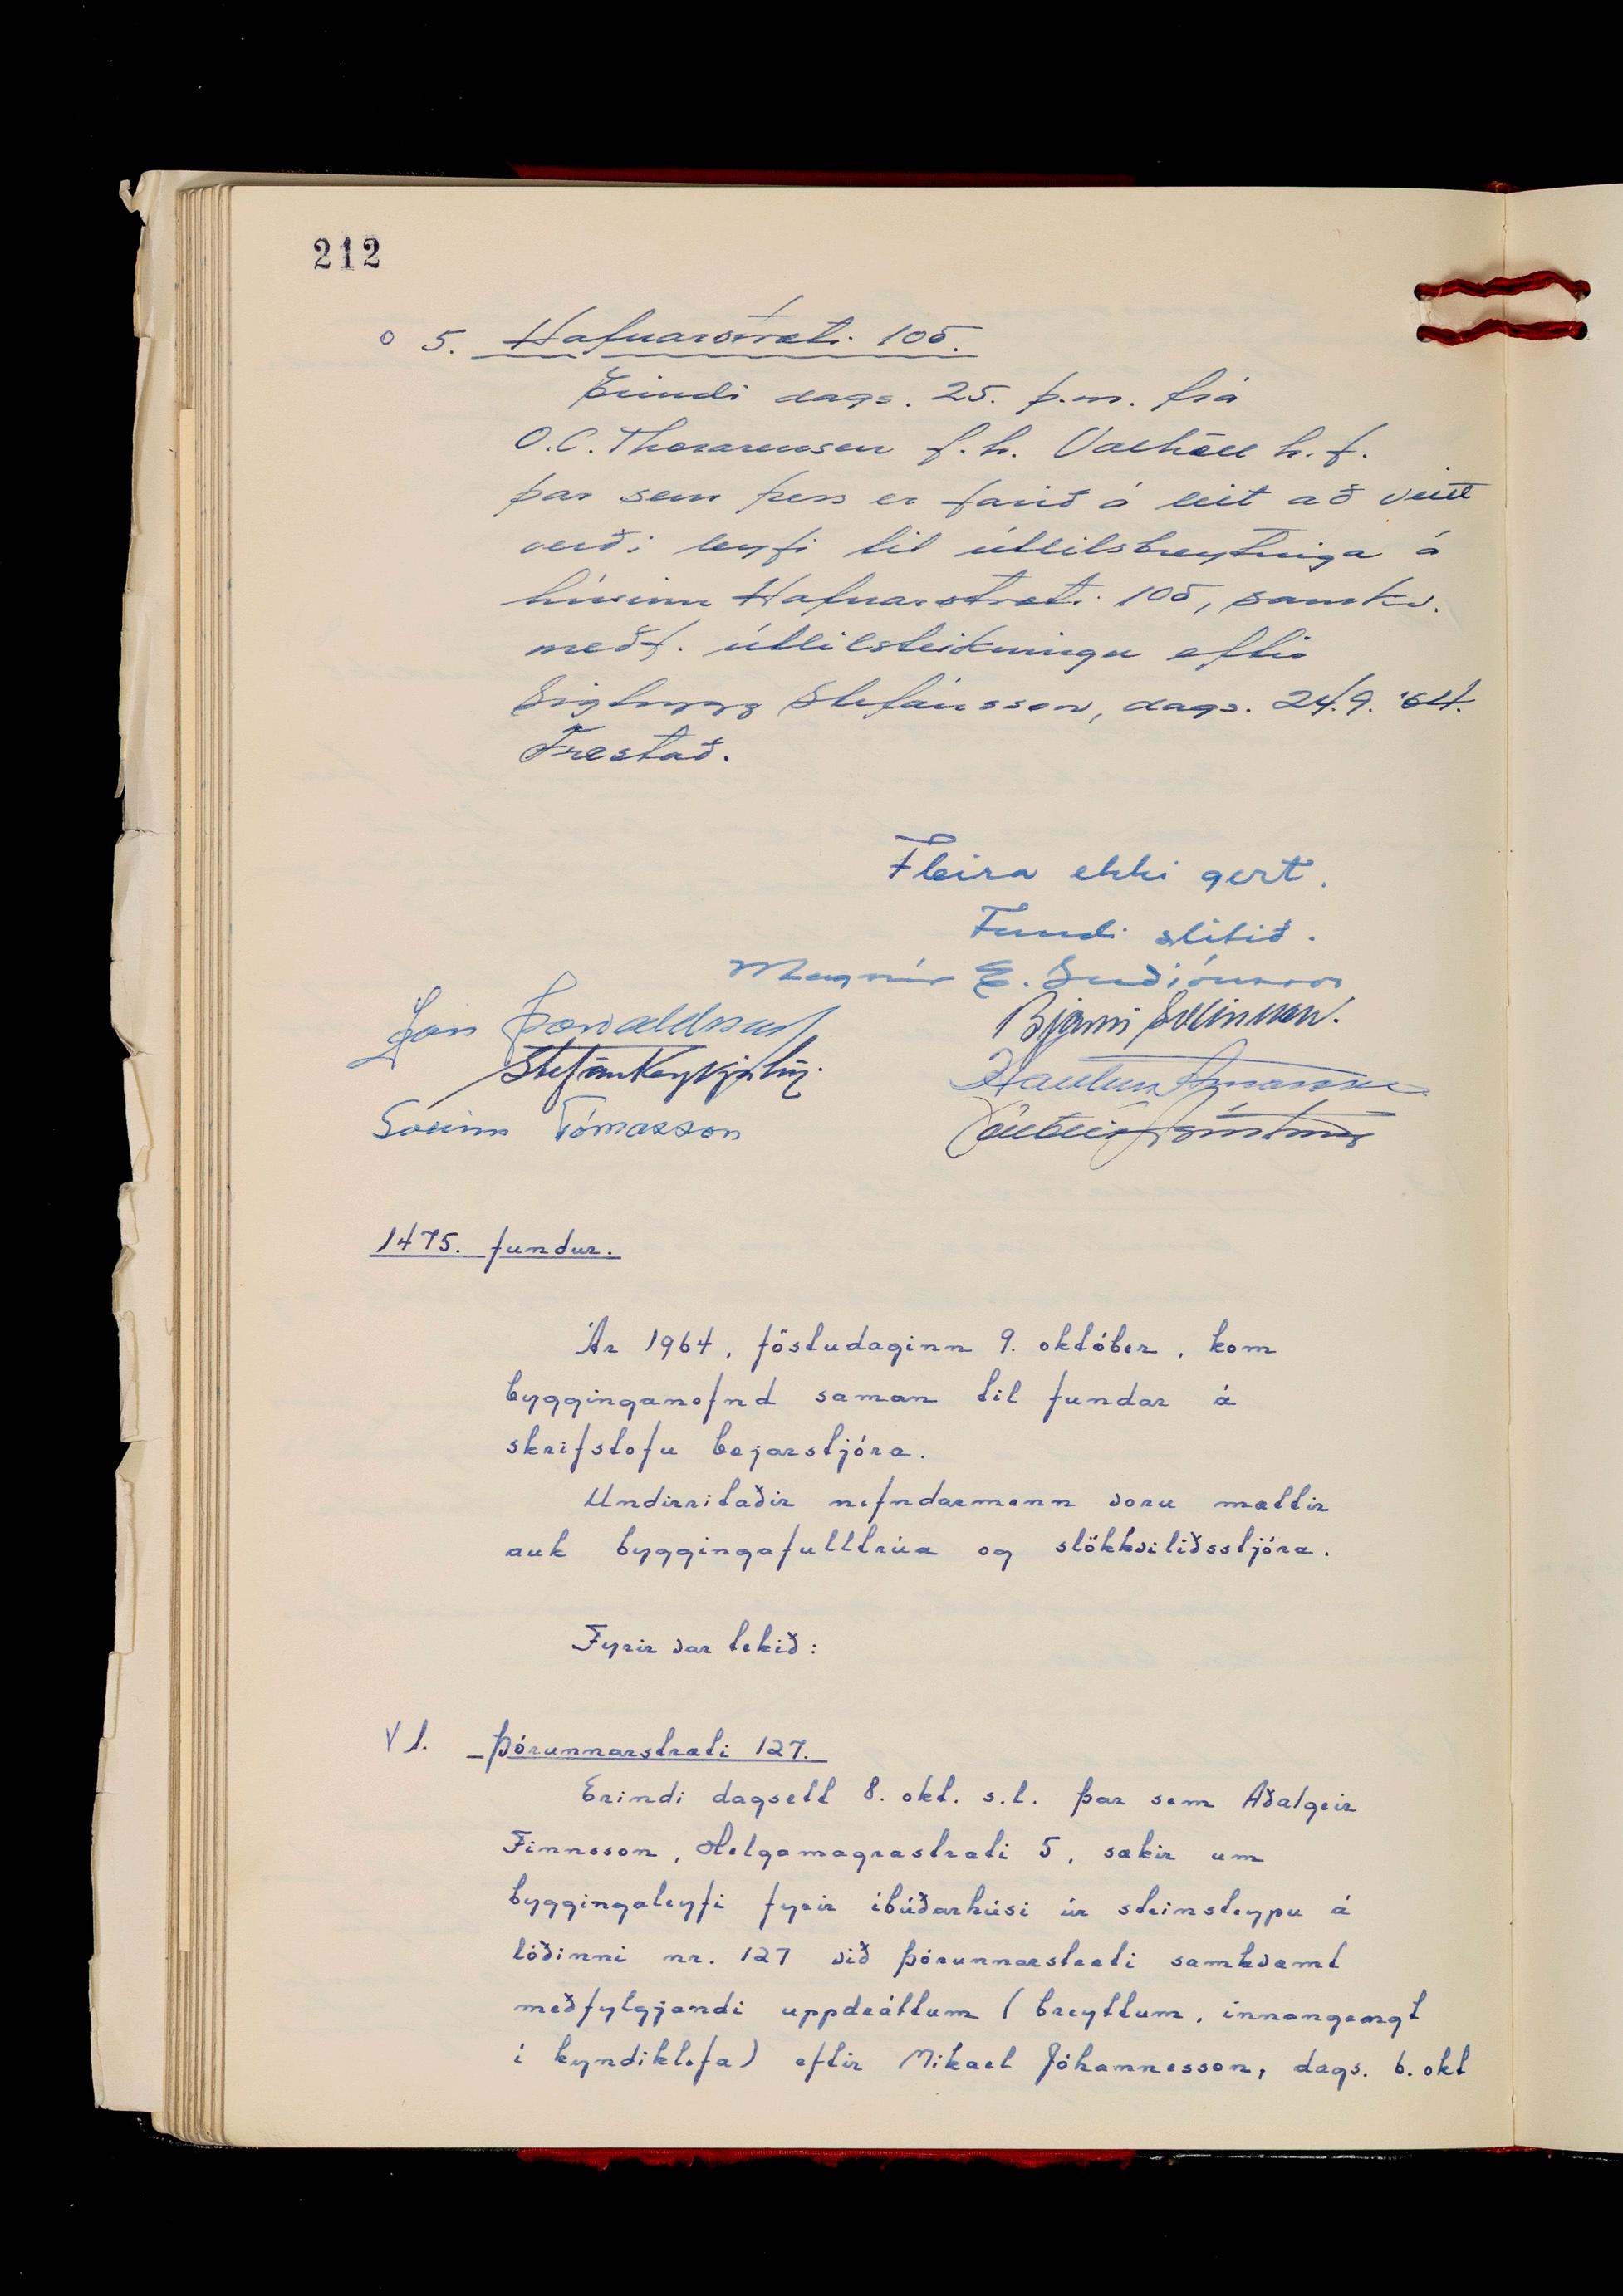 212
o 5. Hafnarstræti 105.
Erindi dags. 25. þ.m. frá
O.C. Thorarensen f.h. Valhöll h.f.
þar sem þess er farið á leit að veitt
verði leyfi til útlitsbreytinga á
húsinu Hafnarstræti 105, samkv.
meðf. útlitsteikningu eftir
Sigtrygg Stefánsson, dags. 24.9. '64.
Frestað.
Fleira ekki gert.
Fundi slitið.
Magnús E. Guðjónsson
Jón Þorvaldsson Bjarni Sveinsson.
Stefán Reykjalín. Haukur Árnason
Sveinn Tómasson
1475. fundur.
Ár 1964, föstudaginn 9. október, kom
bygginganefnd saman til fundar á
skrifstofu bæjarstjóra.
Undirritaðir nefndarmenn voru mættir
auk byggingafulltrúa og slökkviliðsstjóra.
Fyrir var tekið:
V 1. Þórunnarstræti 127.
Erindi dagsett 8. okt. s.l. þar sem Aðalgeir
Finnsson, Helgamagrastræti 5, sækir um
byggingaleyfi fyrir íbúðarhúsi úr steinsteypu á
lóðinni nr. 127 við Þórunnarstræti samkvæmt
meðfylgjandi uppdráttum (breyttum, innangengt
í kyndiklefa) eftir Mikael Jóhannesson, dags. 6. okt